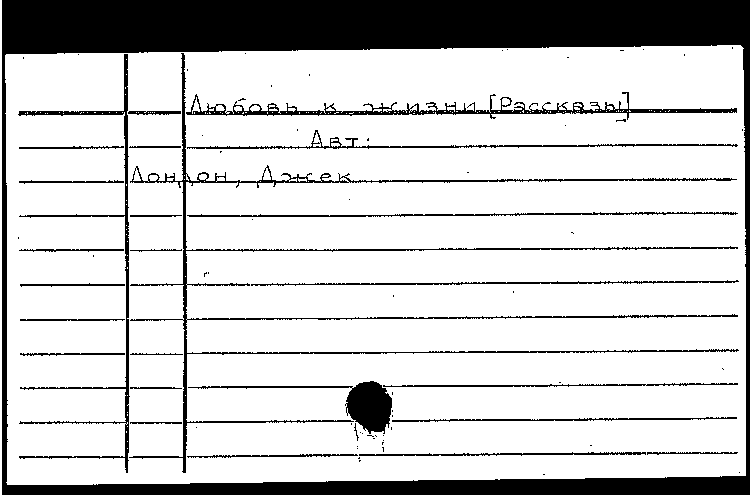 Любовь к жизни [Рассказы]
Авт:
Лондон, Джек